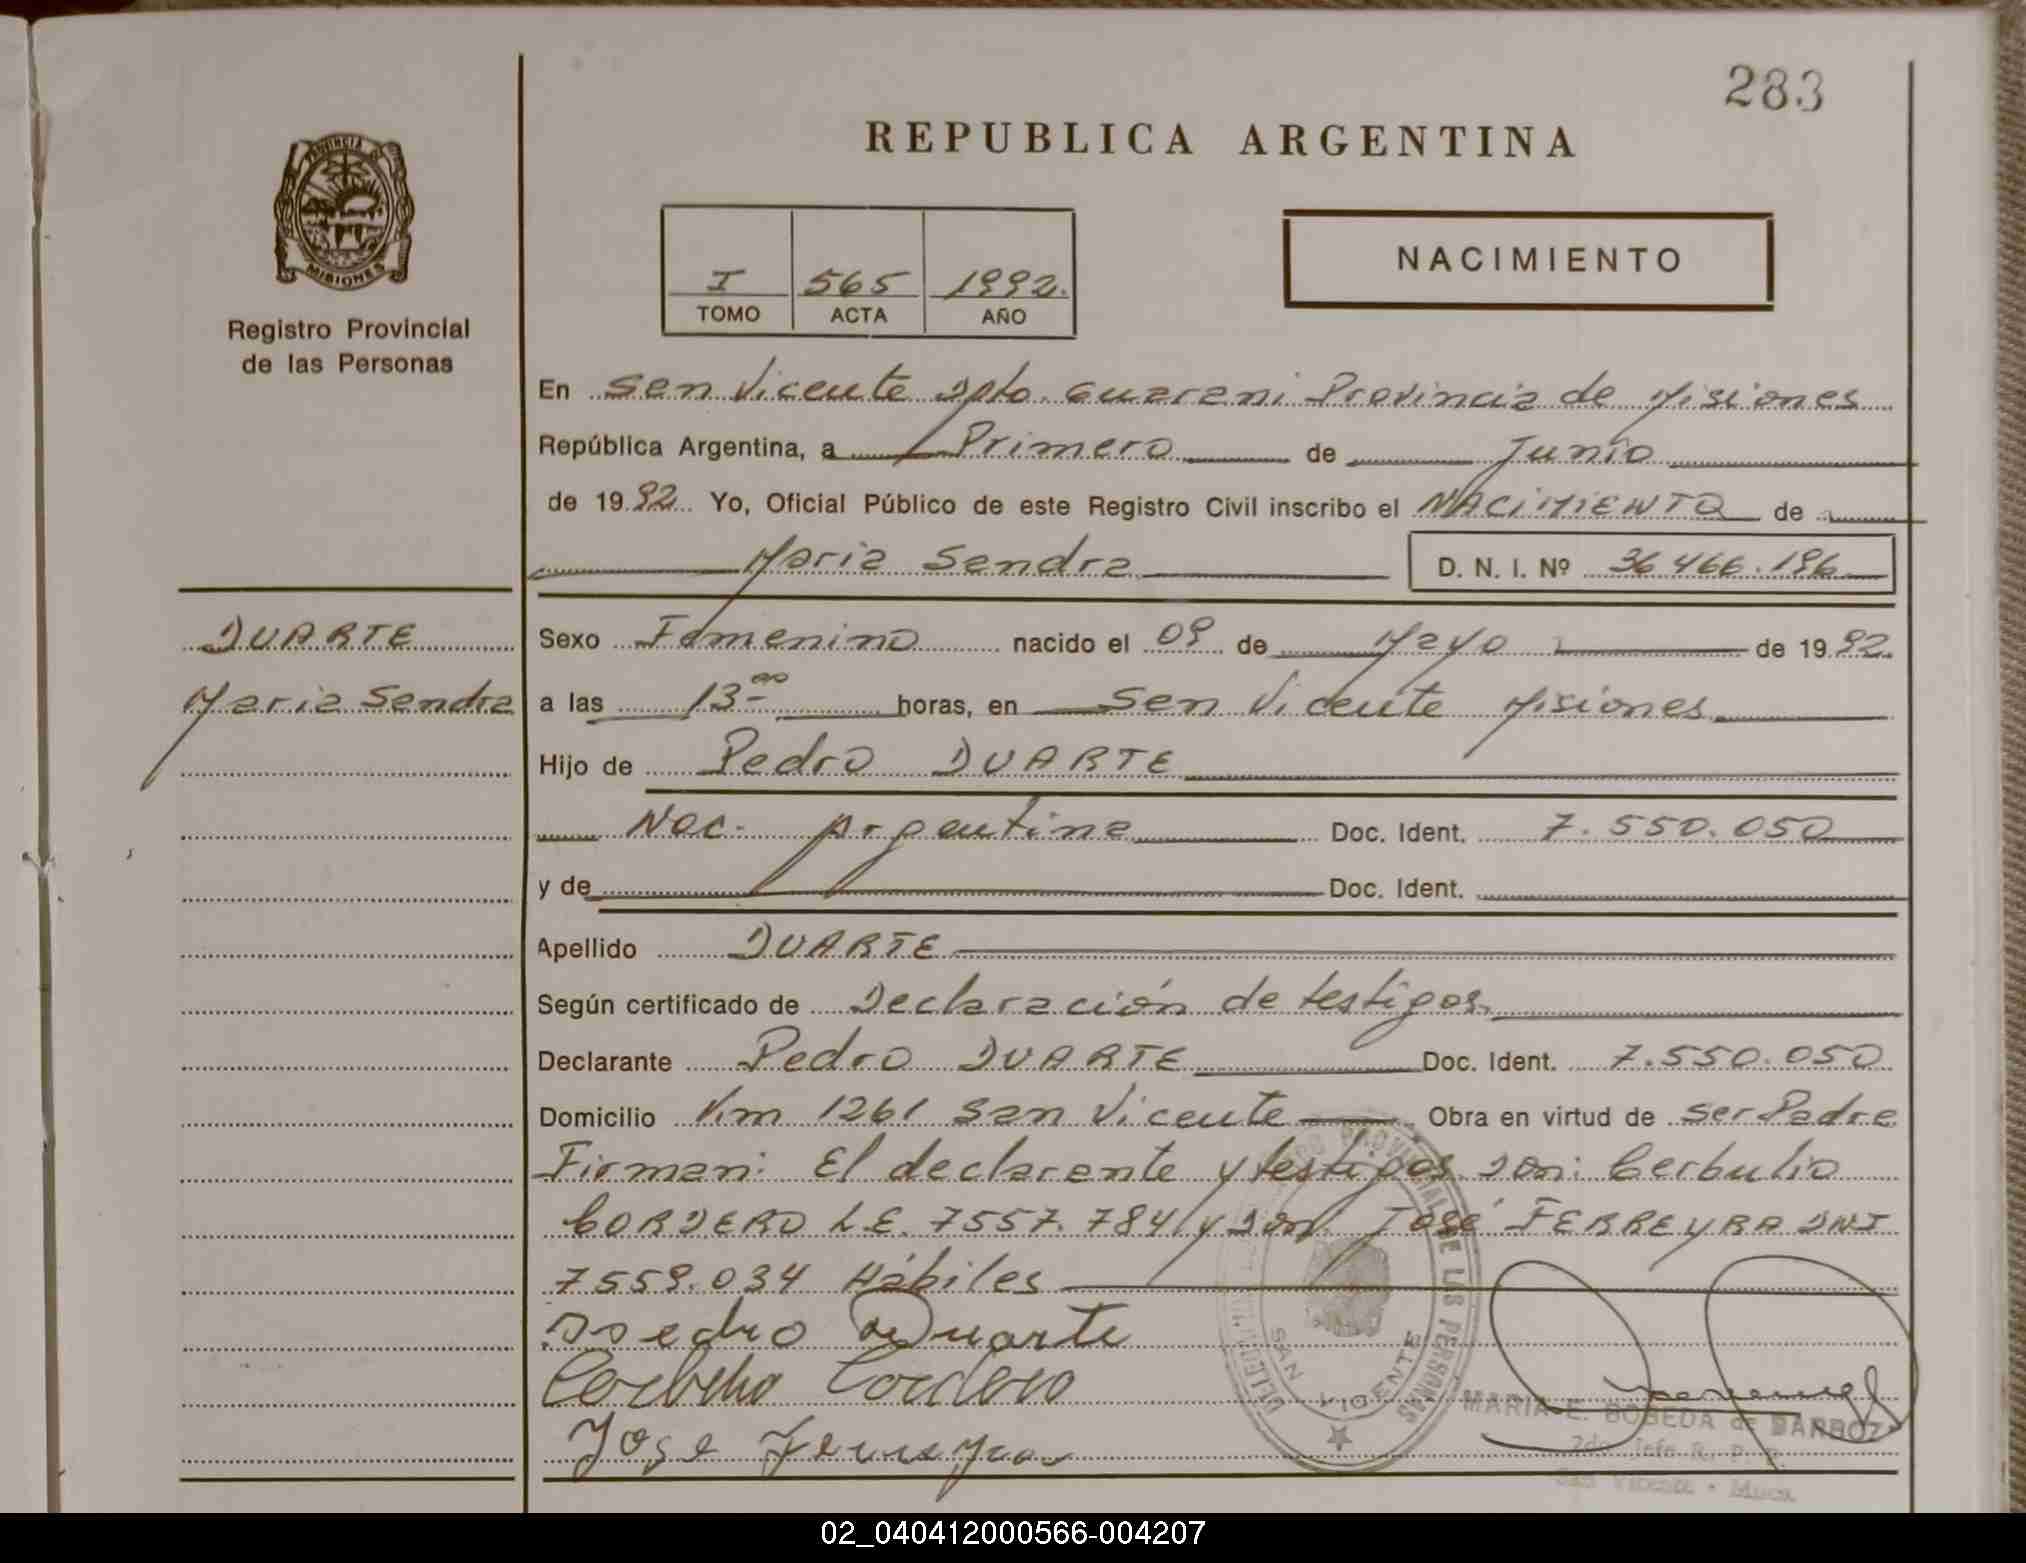 283
REPUBLICA ARGENTINA
PROVINCIA DE
MISIONES
Registro Provincial
de las Personas
NACIMIENTO
I 565 1992.
TOMO ACTA AÑO
En San Vicente Dpto. Guarani Provincia de Misiones
República Argentina, a Primero de Junio
de 1992 Yo, Oficial Público de este Registro Civil inscribo el NACIMIENTO de
Maria Sandra D. N. I. Nº 36466.196
DUARTE
Maria Sandra
Sexo Femenino nacido el 09 de Mayo de 1992.
a las 13 00 horas, en San Vicente Misiones
Hijo de Pedro DUARTE
Nac. Argentina Doc. Ident. 7.550.050
y de Doc. Ident.
Apellido DUARTE
Según certificado de Declaración de testigos
Declarante Pedro DUARTE Doc. Ident. 7.550.050
Domicilio Km 1261 San Vicente Obra en virtud de ser Padre
Firman: El declarante y testigos Don: Cerbulio
CORDERO L.E. 7557.784 y Don. José FERREYRA DNI
7559.034 Hábiles
Pedro Duarte
Cordero
Jose Ferreyra
SAN VICENTE
MARIA E. BOBEDA de BARBOZA
2do. Jefe R. P. P.
San Vicente - Mnes.
02_040412000566-004207